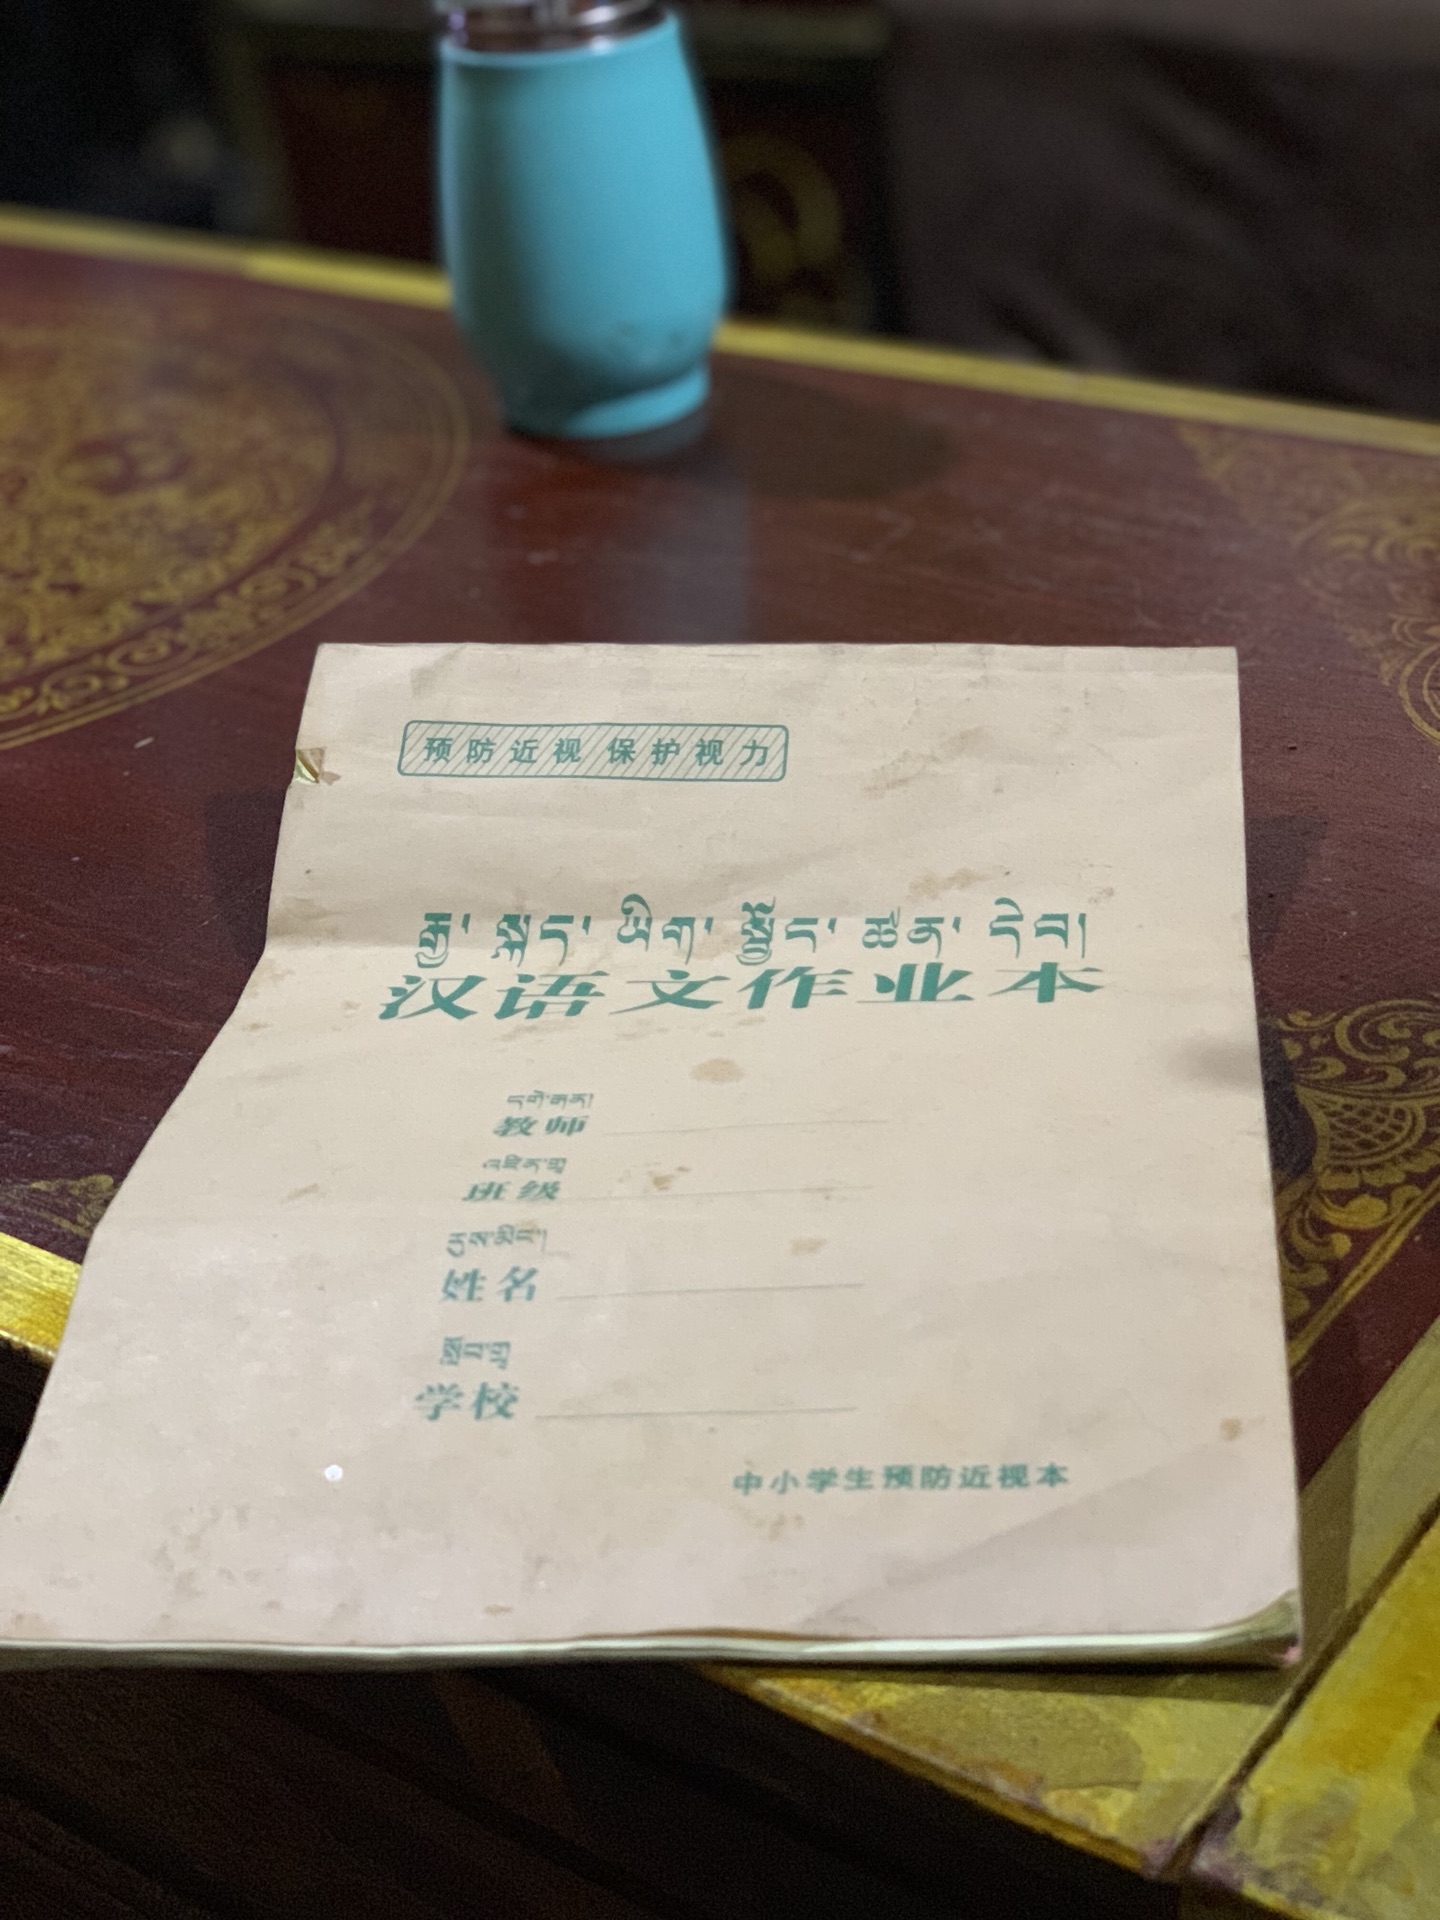 预防近视 保护视力
རྒྱ་སྐད་ཡིག་སྦྱོང་ཚན་དེབ།
汉语文作业本
དགེ་རྒན།
教师
འཛིན་གྲྭ
班级
རུས་མིང་།
姓名
སློབ་གྲྭ
学校
中小学生预防近视本